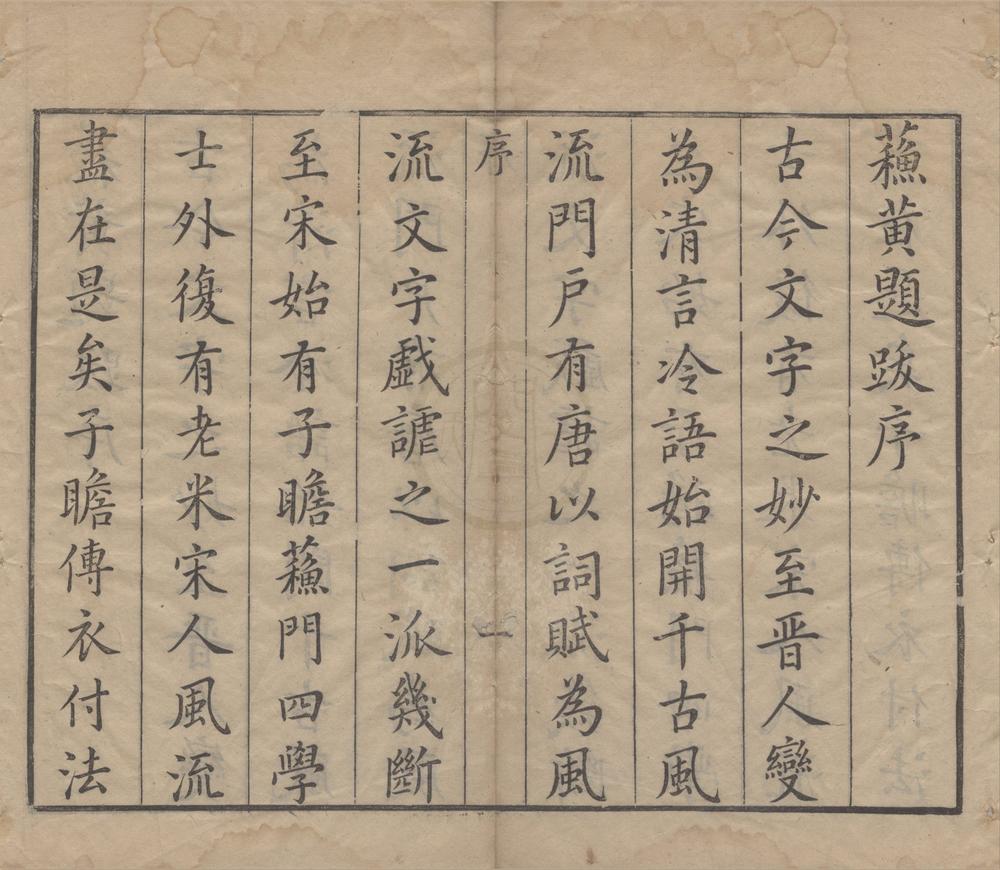 蘓黄題跋序
古今文字之妙至晋人變
為清言冷語始開千古風
流門戸有唐以詞賦為風
序
一
流文字戲謔之一派幾斷
至宋始有子瞻蘓門四學
士外復有老米宋人風流
盡在是矣子瞻傳衣付法